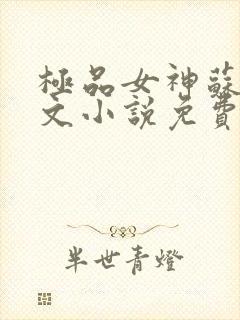 極品女神蘇
文小說免費
半世青燈